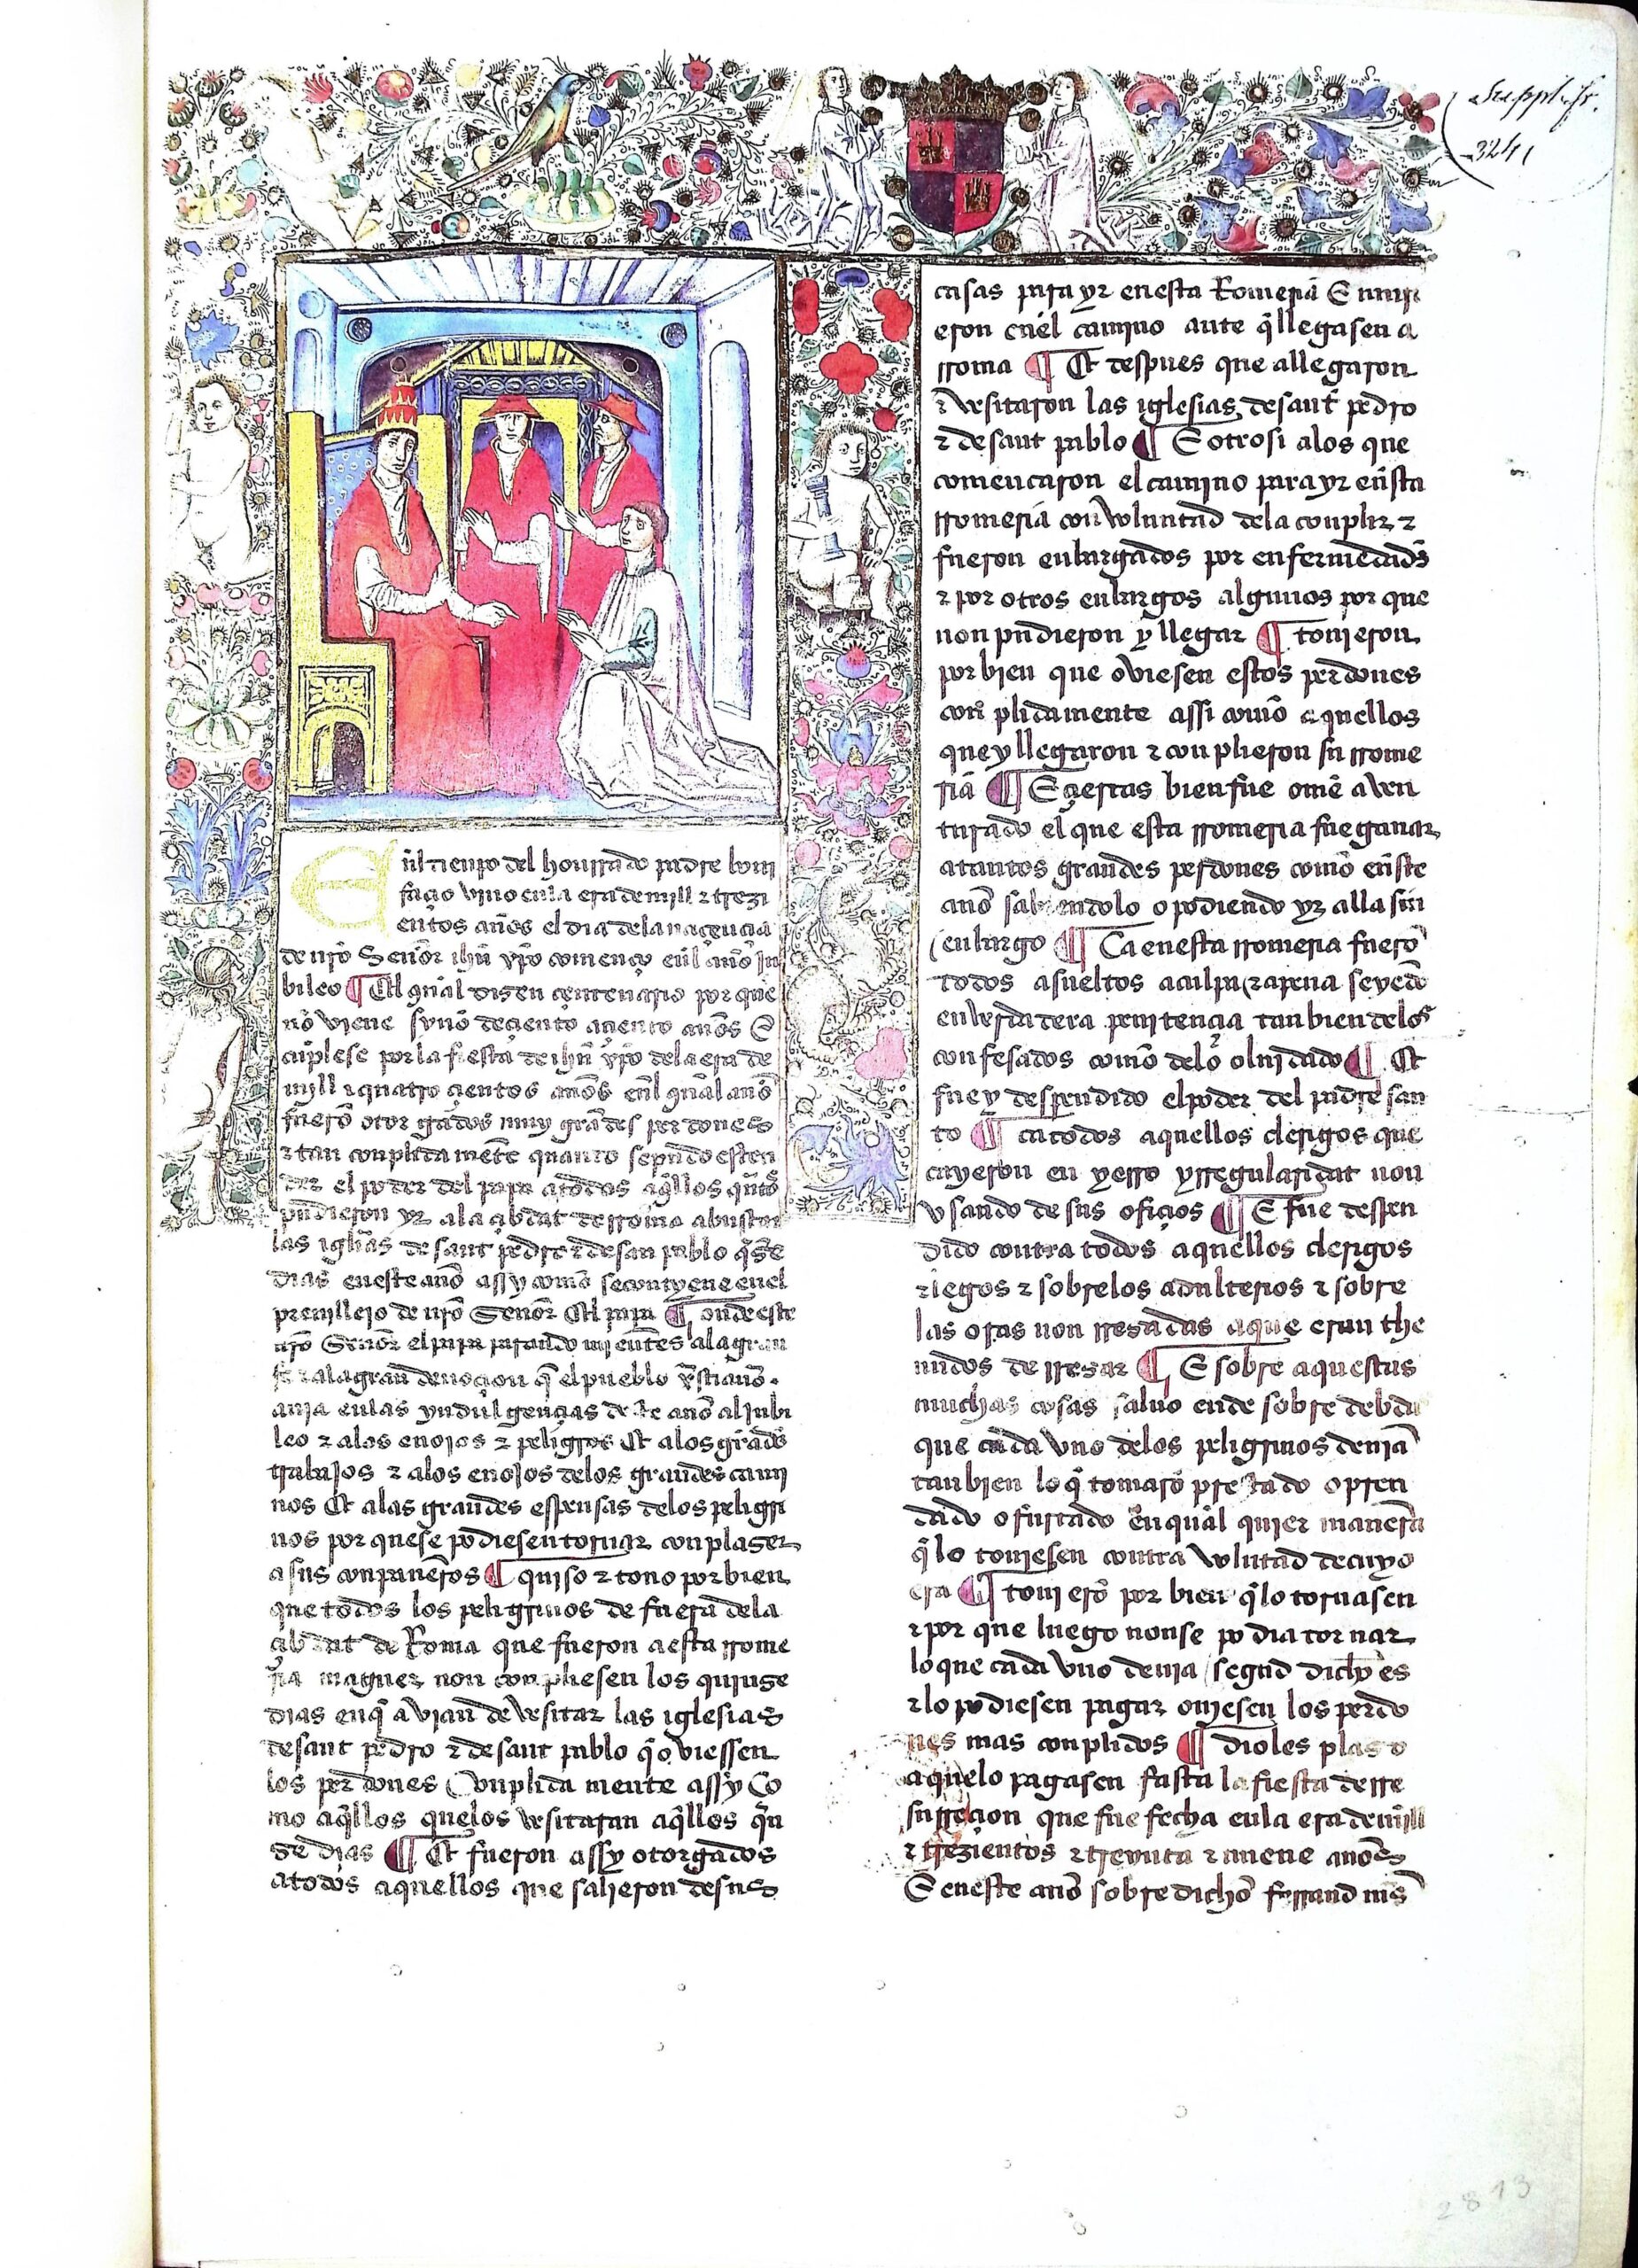 Suppl. fr.
3241
Enl tienpo del honrrado padre boni
façio vino enla era de mill & trezi
entos años el dia dela naçençia
de nr̃o Señor ihũ xp̃o començo enl año ju
bileo ¶ Al qual disen çentenario por que
nõ viene synõ de çiento a çiento años E
cũplese por la fiesta de ihũ xp̃o dela era de
mill & quatroçientos años enl qual año
fuerõ otorgados muy grãdes perdones
& tan conplida mẽte quanto se pudo esten
der el poder del papa a todos aq̃llos qñto
pudieron yr ala çibdat de rroma a buscar
las igl̃ias de sant pedro & de san pablo q̃nse
dias en este año assy como se contyene enel
preuillejo de nr̃o Señor El papa ¶ onde este
nr̃o Señor el papa parando mientes ala gran
fe & ala gran deuoçion q̃ el pueblo xp̃stiano
auia en las yndulgençias deste año al jubi
leo & alos enojos & peligros Et alos grãdes
trabajos & alos enojos delos grandes cami
nos Et alas grandes espensas delos peligri
nos por que se podiesen tornar con plaser
a sus conpañeros ¶ quiso & touo por bien
que todos los peligrinos de fuera dela
çibdat de Roma que fueron a esta rrome
ria maguer non conpliesen los quinse
dias enq̃ auian de vesitar las iglesias
de sant pedro & de sant pablo q̃ ouiessen
los perdones conplida mente assy Co
mo aq̃llos que los vesitaran aq̃llos q̃n
se dias ¶ Et fueron assy otorgados
a todos aquellos que salieron de sus
casas para yr en esta Romeria E muri
eron enel camino ante q̃ llegasen a
rroma ¶ Et despues que allegaron
& vesitaron las iglesias de sant pedro
& de sant pablo ¶ E otrosi alos que
començaron el camino para yr en esta
rromeria con voluntad dela conplir &
fueron enbargados por enfermedades
& por otros enbargos algunos por que
non pudieron y llegar ¶ touieron
por bien que ouiesen estos perdones
conplidamente assi como aquellos
que y llegaron & conplieron su rrome
ria ¶ E çiertas bien fue ome auen
turado el que esta rromeria fue ganar
a tantos grandes perdones como en este
año sabiendolo o podiendo yr alla sin
enbargo ¶ Ca en esta rromeria fuerõ
todos asueltos a culpa & a pena seyedo
en verdadera penitençia tan bien delos
confesados como delo oluidado ¶ Et
fue y despendido el poder del padre san
to ¶ en todos aquellos clerigos que
cayeron en yerro yrregularidat non
vsando de sus ofiçios ¶ E fue despen
dido contra todos aquellos clerigos
& legos & sobre los adulterios & sobre
las oras non rresadas a que eran the
nudos de rresar ¶ E sobre aquestas
muchas cosas saluo ende sobre debda
que cada vno delos peligrinos deuia
tan bien lo q̃ tomarõ prestado o pren
dado o furtado en qual quier manera
q̃ lo touiesen contra volũtad de cuyo
era ¶ touierõ por bien q̃ lo tornasen
& por que luego non se podia tornar
lo que cada vno deuia segũd dicho es
& lo podiesen pagar ouiesen los perdo
nes mas conplidos ¶ dioles plaso
a que lo pagasen fasta la fiesta de rre
surreçion que fue fecha enla era de mill
& trezientos & treynta & nueue años
E en este año sobre dicho ferrand mis
2813